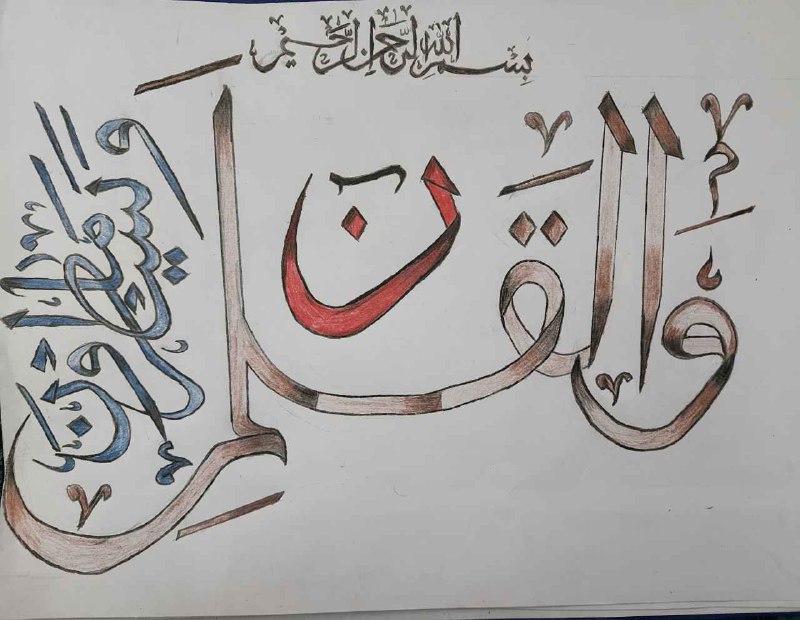 بسم الله الرحمن الرحيم
ن
والقلم
وما يسطرون